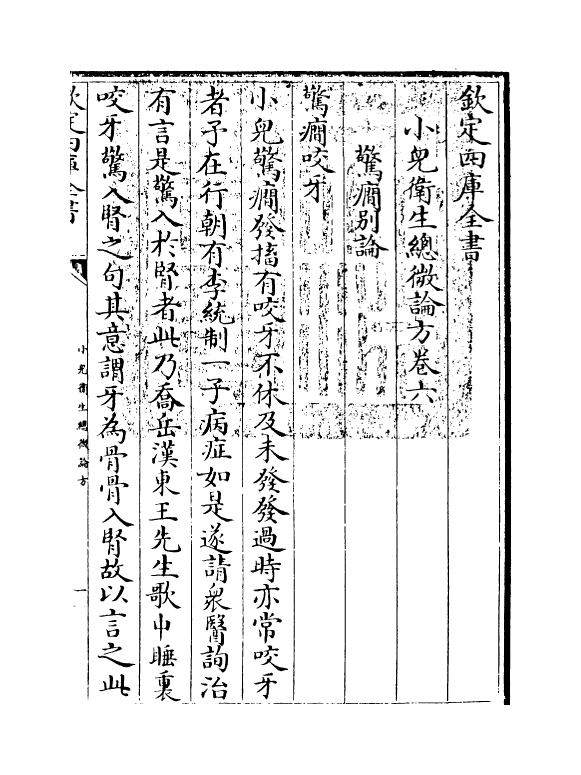 欽定四庫全書
小兒衛生總微論方卷六
驚癇別論
驚癇咬牙
小兒驚癇發搐有咬牙不休及未發發過時亦常咬牙
者予在行朝有李統制一子病症如是遂請衆醫詢治
有言是驚入於腎者此乃喬岳漢東王先生歌中睡裏
咬牙驚入腎之句其意謂牙為骨骨入腎故以言之此
欽定四庫全書
小兒衛生總微論方
一